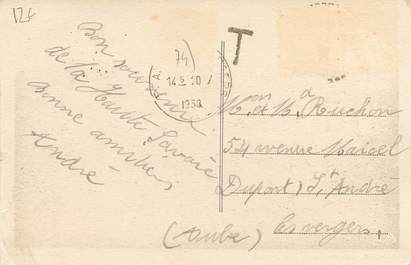 12€
Bon souvenir
de la Haute Savoie
Bonne amitiés
André
74)
14 10
1950
T
Mr et Me Ruchon
54 avenue Marcel
Dupont, St André
les vergers,
(Aube)